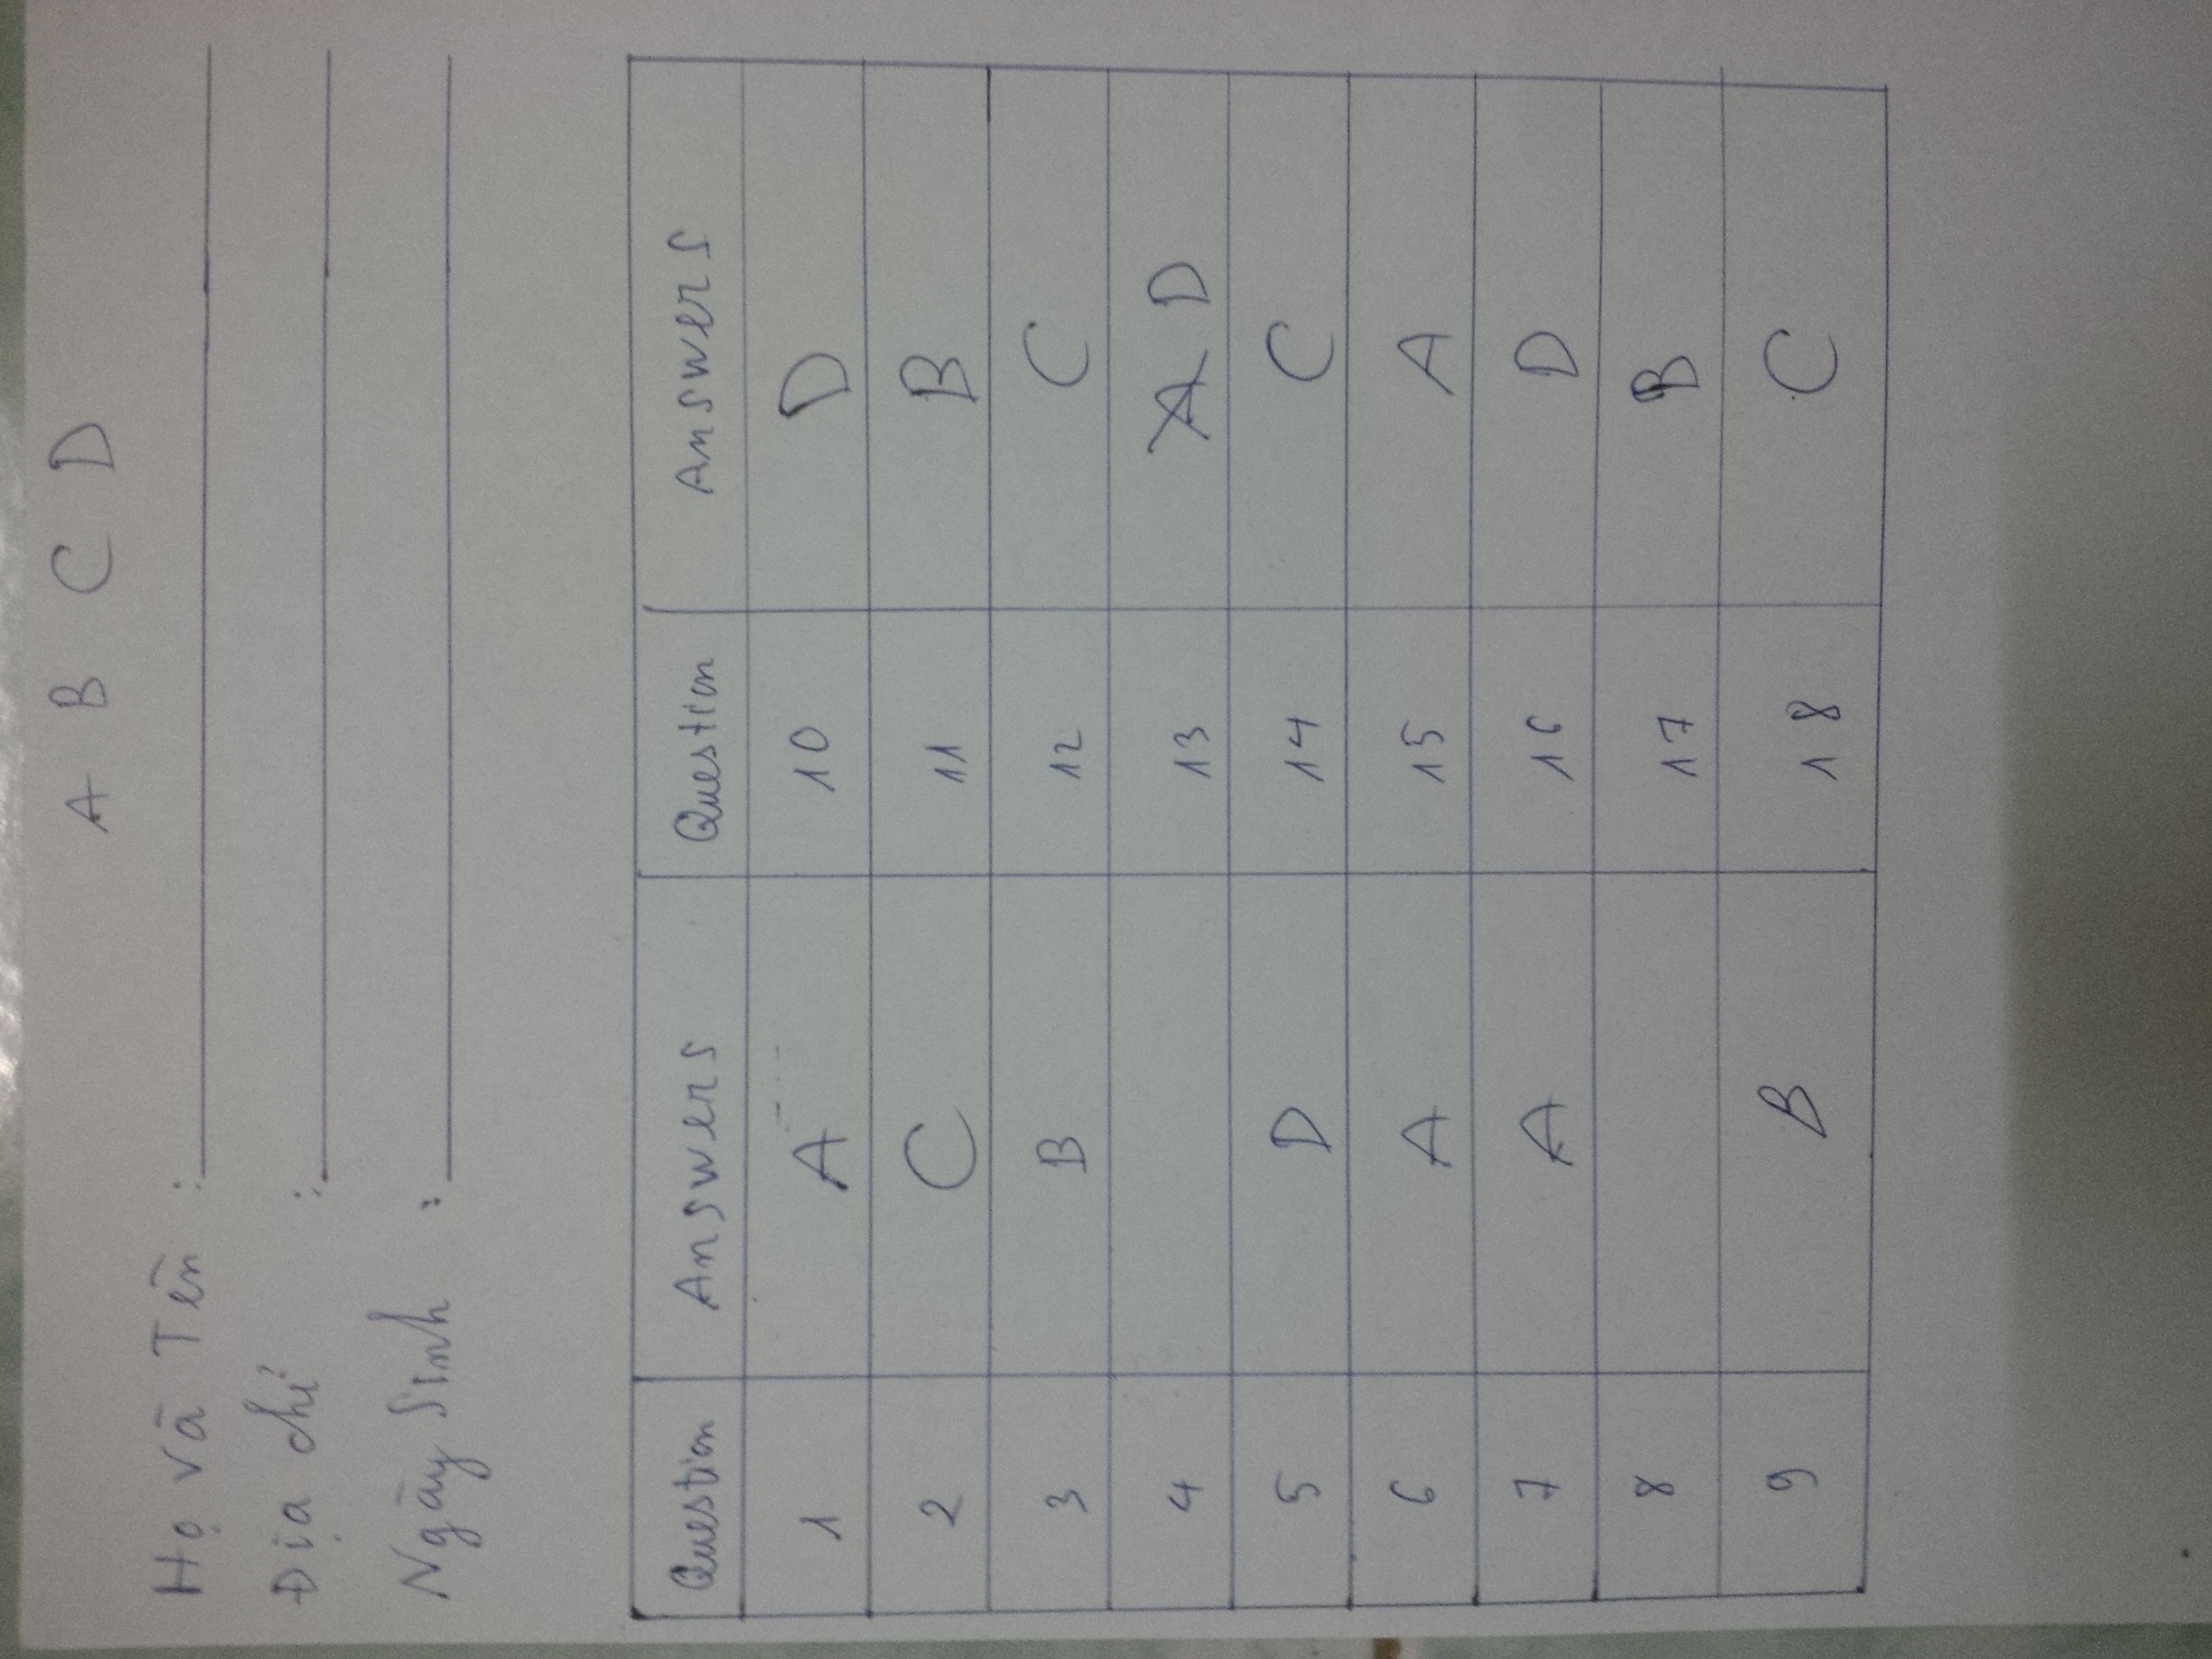 A B C D
Họ và Tên :
Địa chỉ :
Ngày Sinh :
Question Answers Question Answers
1 A 10 D
2 C 11 B
3 B 12 C
4 13 A D
5 D 14 C
6 A 15 A
7 A 16 D
8 17 B
9 B 18 C